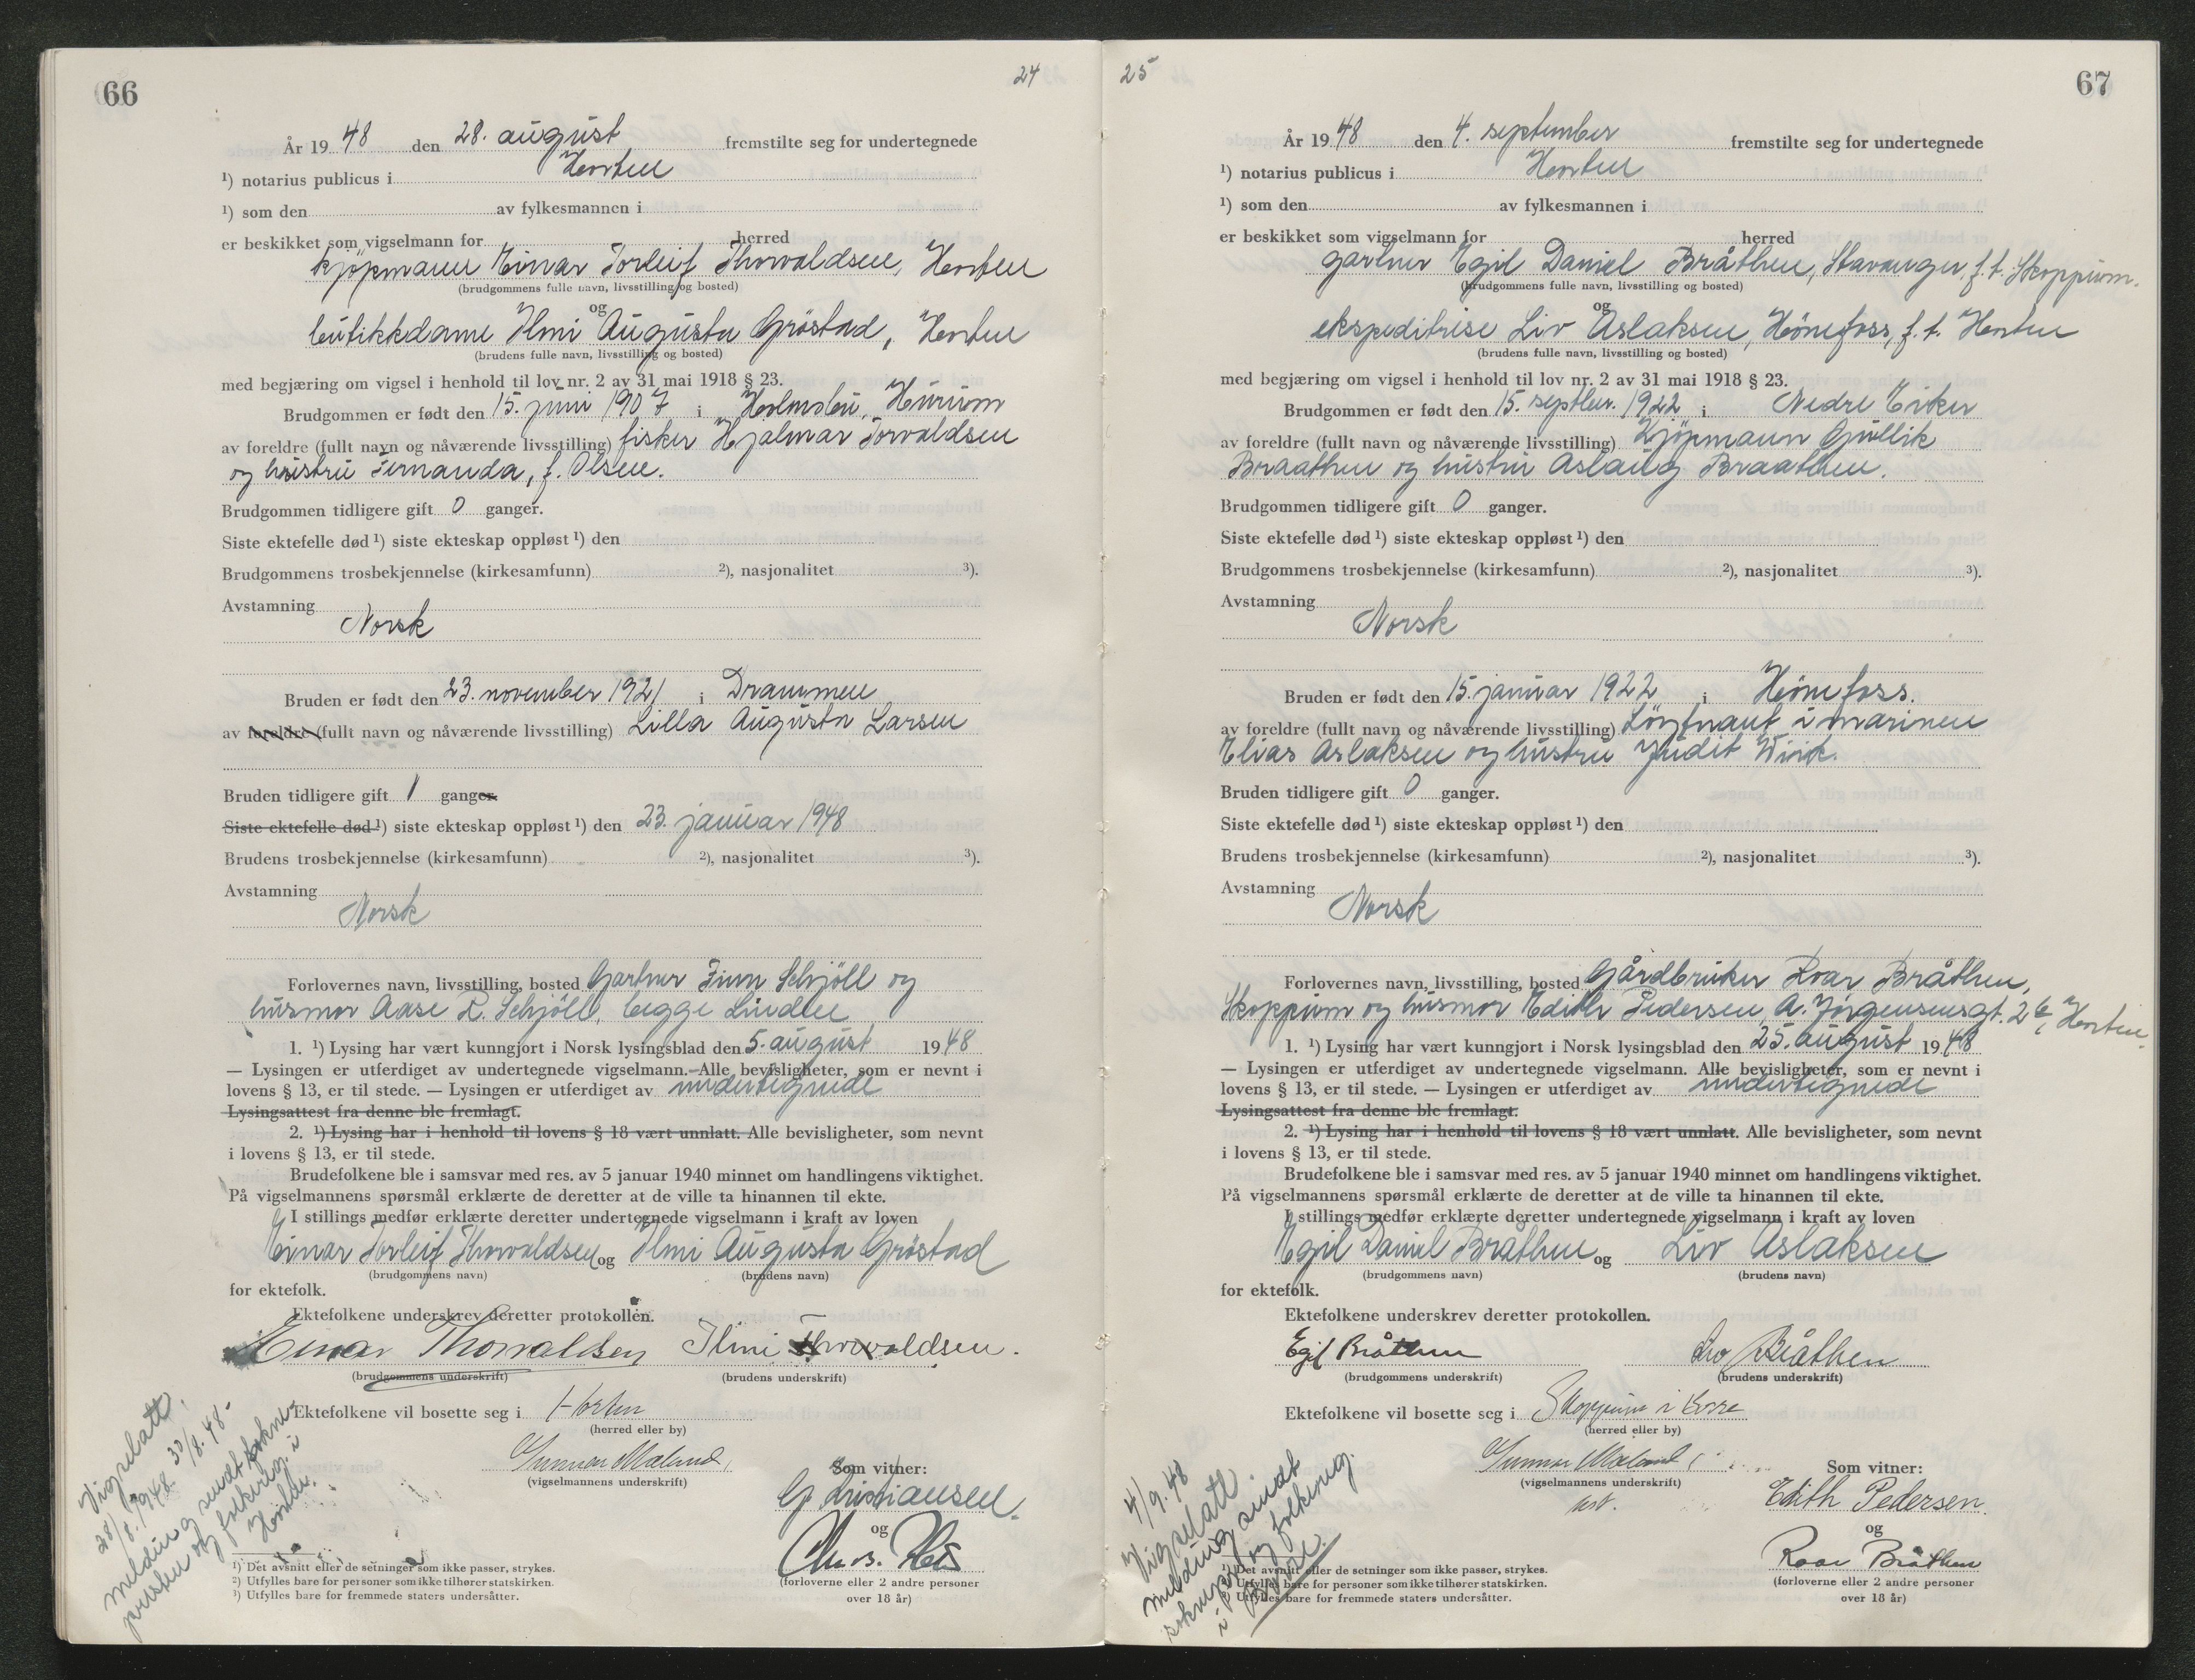 66
24
År 19 48 den 28. august fremstilte seg for undertegnede
¹) notarius publicus i Horten
¹) som den av fylkesmannen i
er beskikket som vigselmann for herred
kjøpmann Einar Torleif Thorvaldsen, Horten
(brudgommens fulle navn, livsstilling og bosted)
og
butikkdame Ilmi Augusta Gröstad, Horten
(brudens fulle navn, livsstilling og bosted)
med begjæring om vigsel i henhold til lov nr. 2 av 31 mai 1918 § 23.
Brudgommen er født den 15. juni 1907 i Holmsbu, Hurum
av foreldre (fullt navn og nåværende livsstilling) fisker Hjalmar Torvaldsen
og hustru Fernanda, f. Olsen.
Brudgommen tidligere gift 0 ganger.
Siste ektefelle død ¹) siste ekteskap oppløst ¹) den
Brudgommens trosbekjennelse (kirkesamfunn) ²), nasjonalitet ³).
Avstamning
Norsk
Bruden er født den 23. november 1921 i Drammen
av foreldre (fullt navn og nåværende livsstilling) Lilla Augusta Larsen
Bruden tidligere gift 1 ganger
Siste ektefelle død ¹) siste ekteskap oppløst ¹) den 23. januar 1948
Brudens trosbekjennelse (kirkesamfunn) ²), nasjonalitet ³).
Avstamning
Norsk
Forlovernes navn, livsstilling, bosted Gartner Finn Schjöll og
husmor Aase R. Schjöll, begge Linden
1. ¹) Lysing har vært kunngjort i Norsk lysingsblad den 5. august 1948
— Lysingen er utferdiget av undertegnede vigselmann. Alle bevisligheter, som er nevnt i
lovens § 13, er til stede. — Lysingen er utferdiget av undertegnede
Lysingsattest fra denne ble fremlagt.
2. ¹) Lysing har i henhold til lovens § 18 vært unnlatt. Alle bevisligheter, som nevnt
i lovens § 13, er til stede.
Brudefolkene ble i samsvar med res. av 5 januar 1940 minnet om handlingens viktighet.
På vigselmannens spørsmål erklærte de deretter at de ville ta hinannen til ekte.
I stillings medfør erklærte deretter undertegnede vigselmann i kraft av loven
Einar Torleif Thorvaldsen og Ilmi Augusta Gröstad
(brudgommens navn) (brudens navn)
for ektefolk.
Ektefolkene underskrev deretter protokollen.
Einar Thorvaldsen Ilmi Thorvaldsen.
(brudgommens underskrift) (brudens underskrift)
Ektefolkene vil bosette seg i Horten
(herred eller by)
Gunnar Mæland,
(vigselmannens underskrift)
Som vitner:
G. Kristiansen.
og
(forloverne eller 2 andre personer
over 18 år)
Vigselatt.
28/8. 1948. 30/8. 48
melding sendt sokne-
presten og folkereg. i
Horten.
¹) Det avsnitt eller de setninger som ikke passer, strykes.
²) Utfylles bare for personer som ikke tilhører statskirken.
³) Utfylles bare for fremmede staters undersåtter.
25
67
År 19 48 den 4. september fremstilte seg for undertegnede
¹) notarius publicus i Horten
¹) som den av fylkesmannen i
er beskikket som vigselmann for herred
gartner Egil Daniel Bråthen, Stavanger, f. t. Skoppum.
(brudgommens fulle navn, livsstilling og bosted)
og
ekspeditrise Liv Aslaksen, Hönefoss, f. t. Horten
(brudens fulle navn, livsstilling og bosted)
med begjæring om vigsel i henhold til lov nr. 2 av 31 mai 1918 § 23.
Brudgommen er født den 15. septbr. 1922 i Nedre Eiker
av foreldre (fullt navn og nåværende livsstilling) Kjöpmann Gullik
Braathen og hustru Aslaug Braathen.
Brudgommen tidligere gift 0 ganger.
Siste ektefelle død ¹) siste ekteskap oppløst ¹) den
Brudgommens trosbekjennelse (kirkesamfunn) ²), nasjonalitet ³).
Avstamning
Norsk
Bruden er født den 15. januar 1922 i Hönefoss.
av foreldre (fullt navn og nåværende livsstilling) Löytnant i marinen
Elias Aslaksen og hustru Judit Wiik.
Bruden tidligere gift 0 ganger.
Siste ektefelle død ¹) siste ekteskap oppløst ¹) den
Brudens trosbekjennelse (kirkesamfunn) ²), nasjonalitet ³).
Avstamning
Norsk
Forlovernes navn, livsstilling, bosted Gårdbruker Roar Bråthen,
Skoppum og husmor Edith Pedersen, A. Jörgensensgt. 2b, Horten.
1. ¹) Lysing har vært kunngjort i Norsk lysingsblad den 25. august 1948
— Lysingen er utferdiget av undertegnede vigselmann. Alle bevisligheter, som er nevnt i
lovens § 13, er til stede. — Lysingen er utferdiget av undertegnede
Lysingsattest fra denne ble fremlagt.
2. ¹) Lysing har i henhold til lovens § 18 vært unnlatt. Alle bevisligheter, som nevnt
i lovens § 13, er til stede.
Brudefolkene ble i samsvar med res. av 5 januar 1940 minnet om handlingens viktighet.
På vigselmannens spørsmål erklærte de deretter at de ville ta hinannen til ekte.
I stillings medfør erklærte deretter undertegnede vigselmann i kraft av loven
Egil Daniel Bråthen og Liv Aslaksen
(brudgommens navn) (brudens navn)
for ektefolk.
Ektefolkene underskrev deretter protokollen.
Egil Bråthen Liv Bråthen
(brudgommens underskrift) (brudens underskrift)
Ektefolkene vil bosette seg i Skoppum i Borre
(herred eller by)
Gunnar Mæland
(vigselmannens underskrift)
Som vitner:
Edith Pedersen.
og
Roar Bråthen
(forloverne eller 2 andre personer
over 18 år)
4/9. 48
Vigselatt.
melding sendt
sokneprest og folkereg.
i Borre.
¹) Det avsnitt eller de setninger som ikke passer, strykes.
²) Utfylles bare for personer som ikke tilhører statskirken.
³) Utfylles bare for fremmede staters undersåtter.